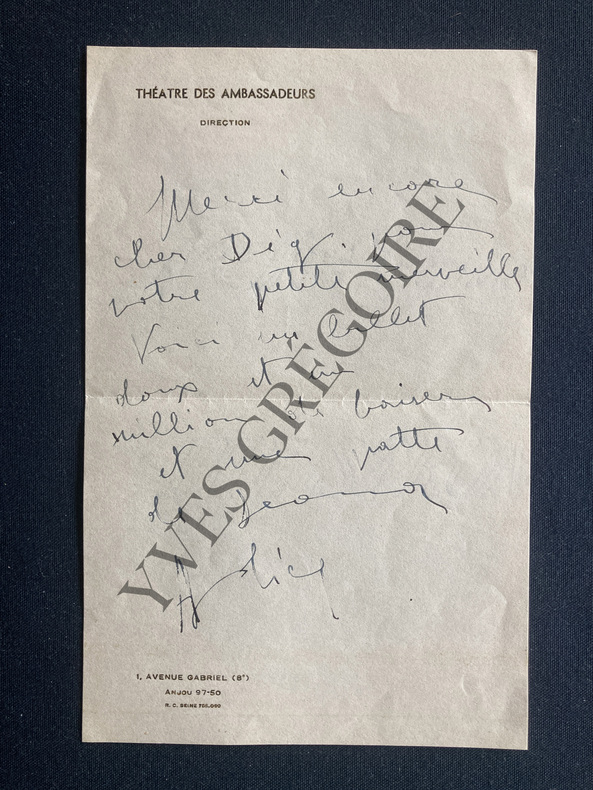 THÉATRE DES AMBASSADEURS
DIRECTION
Merci encore
cher Dig. pour
votre petite merveille
Voici un billet
doux et un
million de baisers
et une patte
de
Alice
1, AVENUE GABRIEL (8e)
ANJOU 97-50
R. C. SEINE
YVES GRÉGOIRE